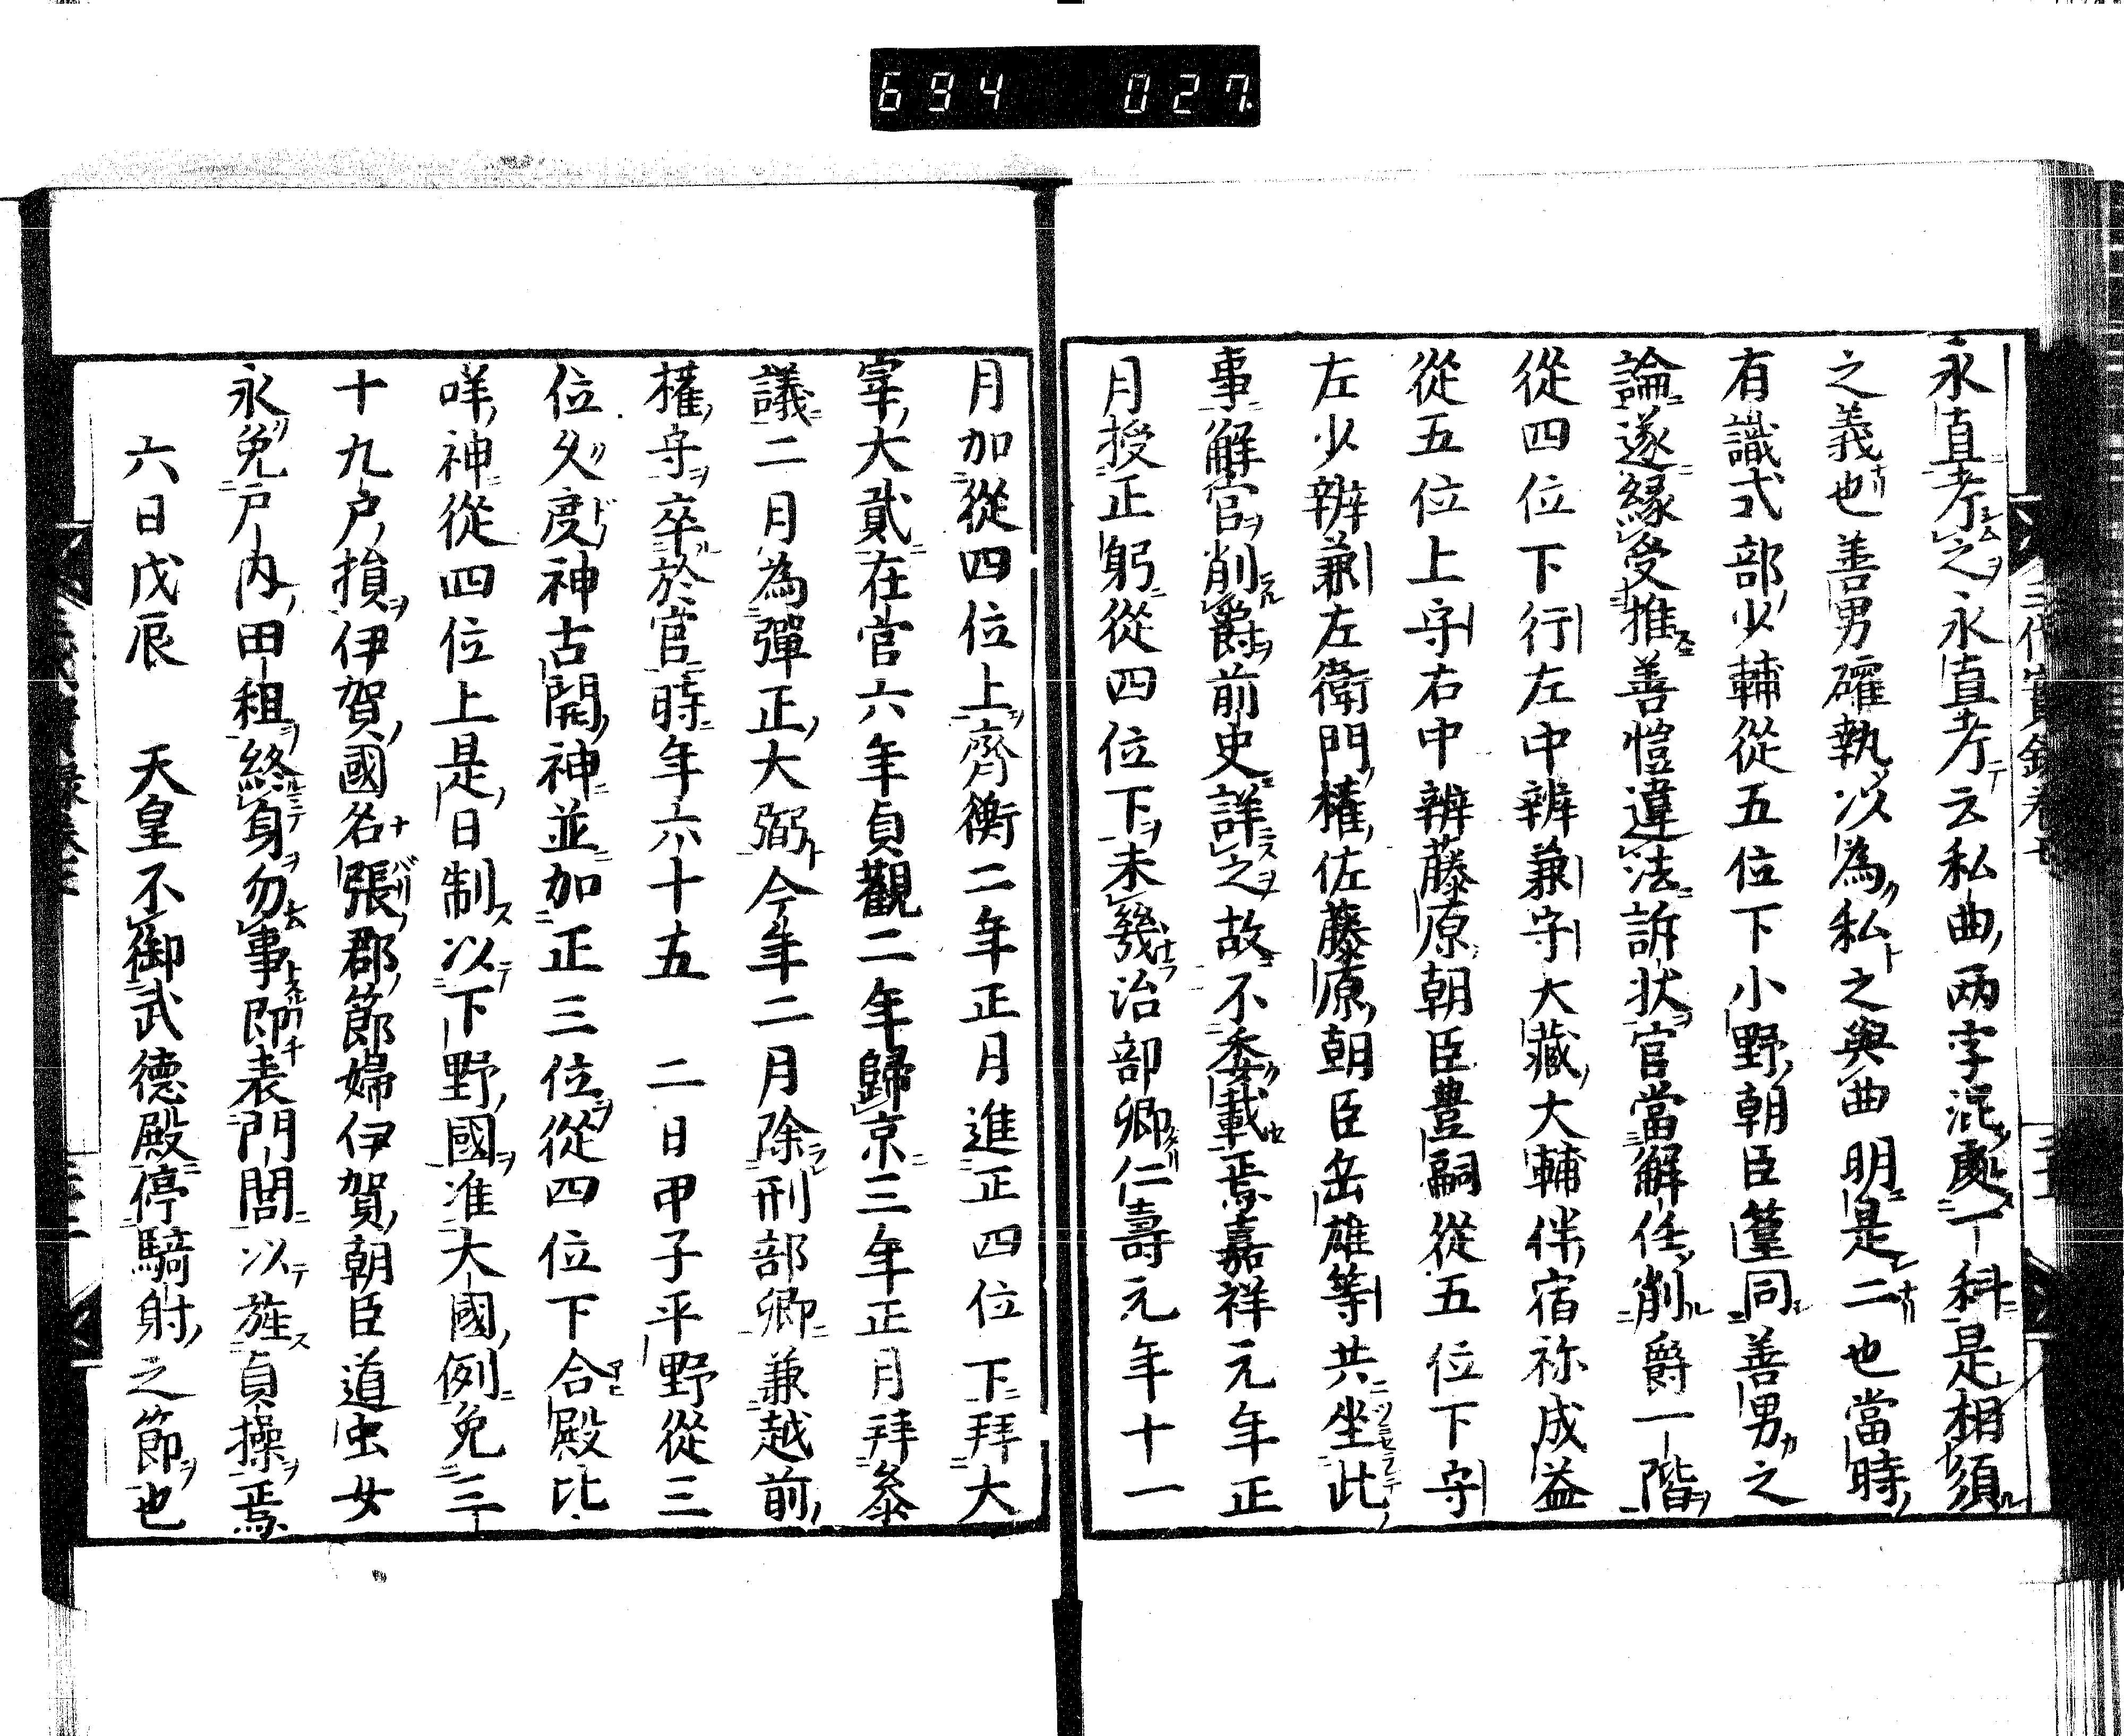 694 027.
永直考之永直考云私曲兩字混處一科是相須
之義也善男確執以為私之與曲明是二也當時
有識式部少輔從五位下小野朝臣篁同善男之
論遂緣受推善愷違法訴狀官當解任削爵一階
從四位下行左中辨兼守大藏大輔伴宿祢成益
從五位上守右中辨藤原朝臣豊嗣從五位下守
左少辨兼左衛門權佐藤原朝臣岳雄等共坐此
事解官削爵前史詳之故不委載焉嘉祥元年正
月授正躬從四位下未幾治部卿仁壽元年十一
月加從四位上齊衡二年正月進正四位下拜大
宰大貳在官六年貞觀二年歸京三年正月拜叅
議二月為彈正大弼今年二月除刑部卿兼越前
權守卒於官時年六十五 二日甲子平野從三
位久度神古開神並加正三位從四位下合殿比
咩神從四位上是日制以下野國准大國例免三
十九戶損伊賀國名張郡節婦伊賀朝臣道虫女
永免戶內田租終身勿事即表門閭以旌貞操焉
六日戊辰 天皇不御武德殿停騎射之節也